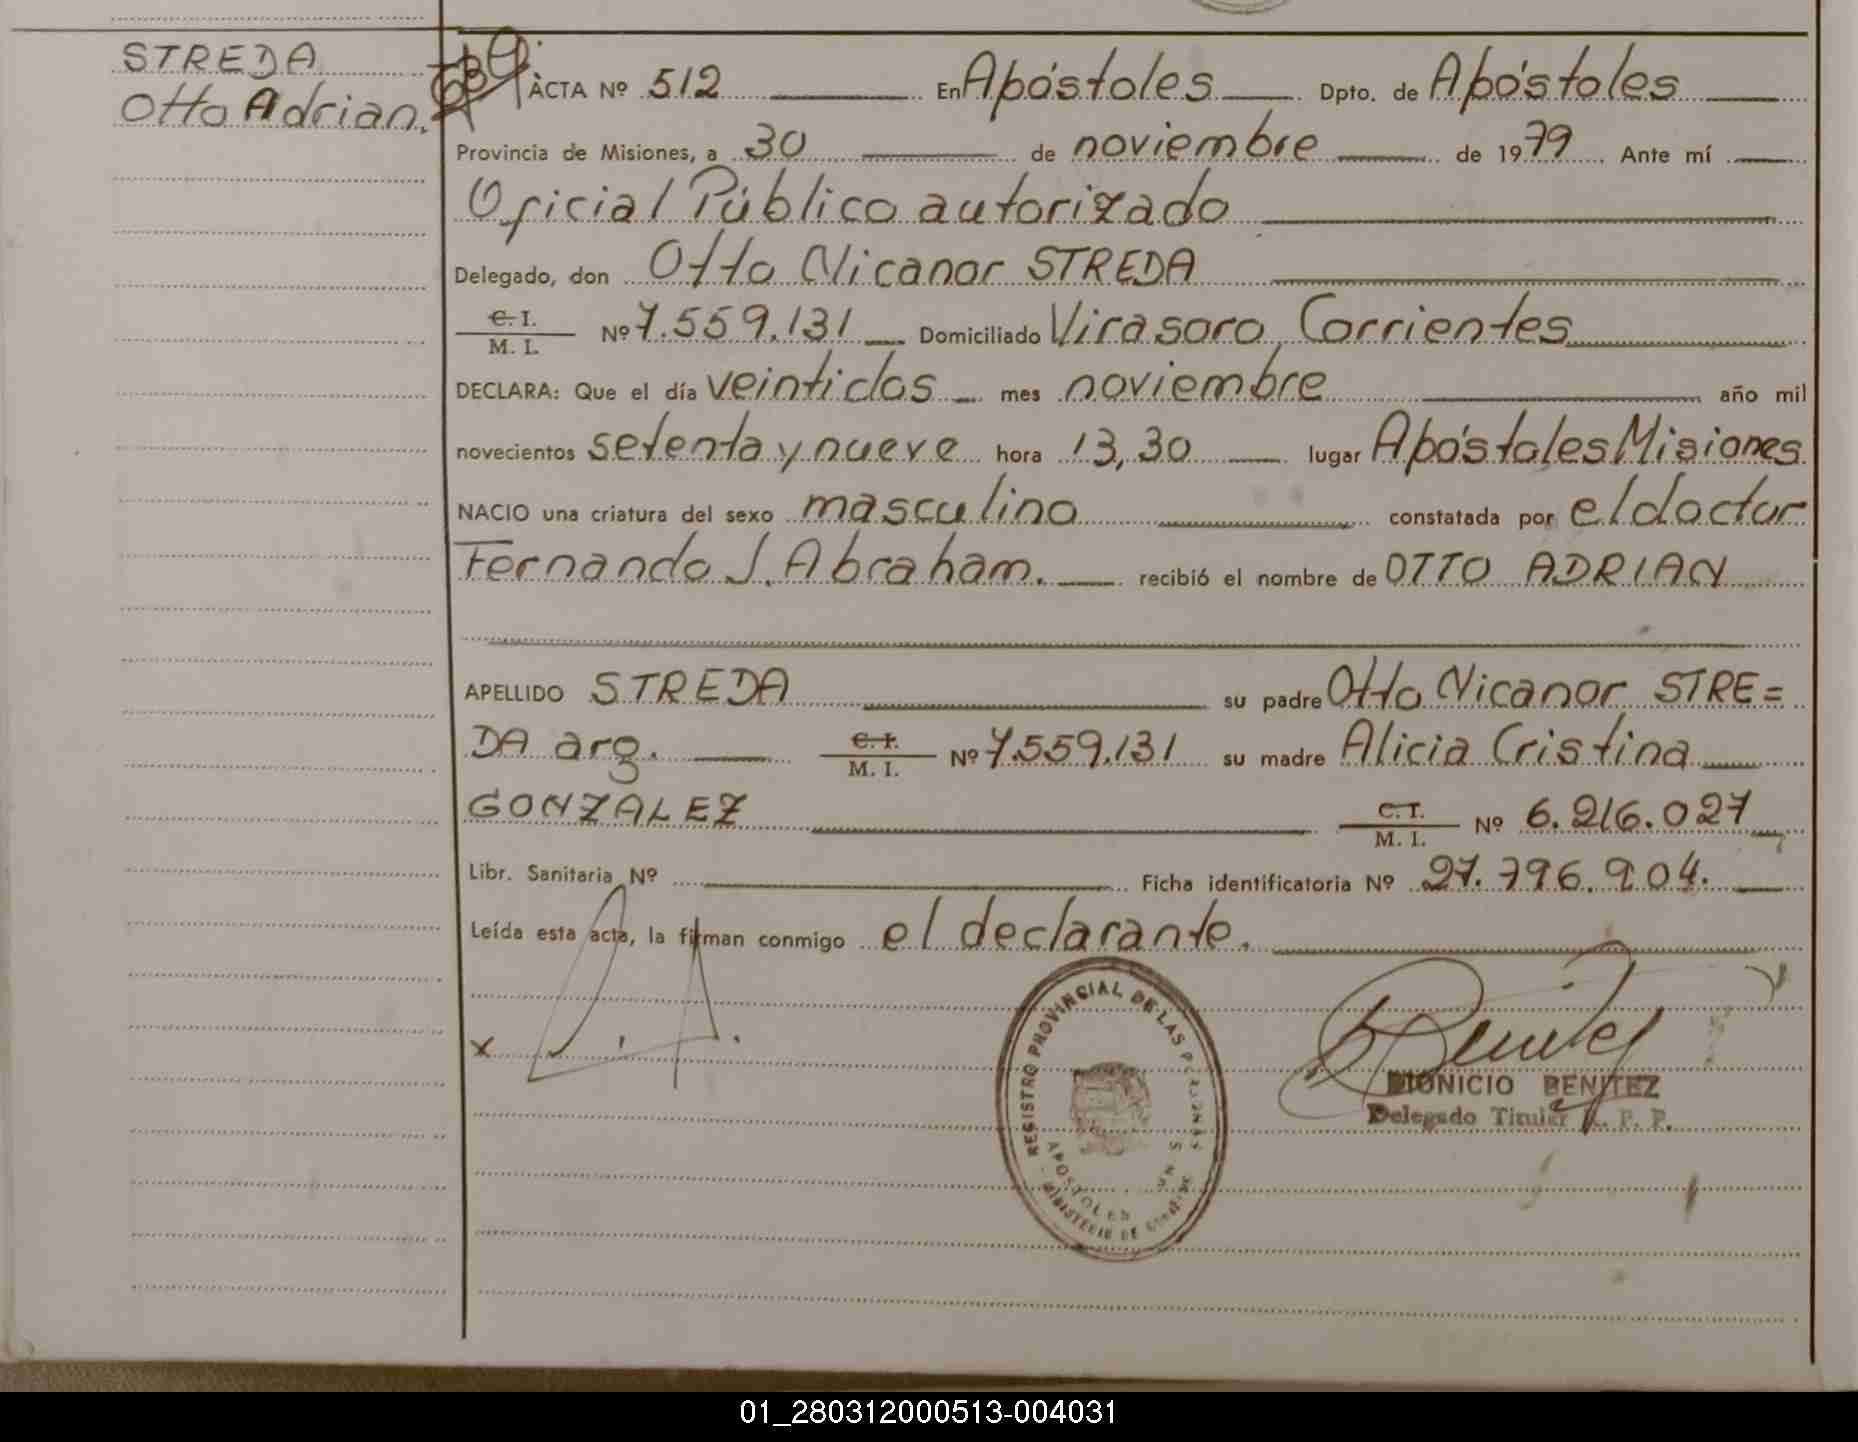 STREDA
Otto Adrian.
ACTA Nº 512 En Apóstoles Dpto. de Apóstoles
Provincia de Misiones, a 30 de noviembre de 1979 Ante mí
Oficial Público autorizado
Delegado, don Otto Nicanor STREDA
C. I.
M. I. Nº 7.559.131 Domiciliado Virasoro Corrientes
DECLARA: Que el día veintidos mes noviembre año mil
novecientos setenta y nueve hora 13,30 lugar Apóstoles Misiones
NACIO una criatura del sexo masculino constatada por el doctor
Fernando J. Abraham. recibió el nombre de OTTO ADRIAN
APELLIDO STREDA su padre Otto Nicanor STRE=
DA arg. C. I. M. I. Nº 7.559.131 su madre Alicia Cristina
GONZALEZ C. I. M. I. Nº 6.216.027
Libr. Sanitaria Nº Ficha identificatoria Nº 27.796.904.
Leída esta acta, la firman conmigo el declarante.
x
REGISTRO PROVINCIAL DE LAS PERSONAS
APOSTOLES
MINISTERIO DE
Benitez
DIONICIO BENITEZ
Delegado Titular R. P. P.
01_280312000513-004031